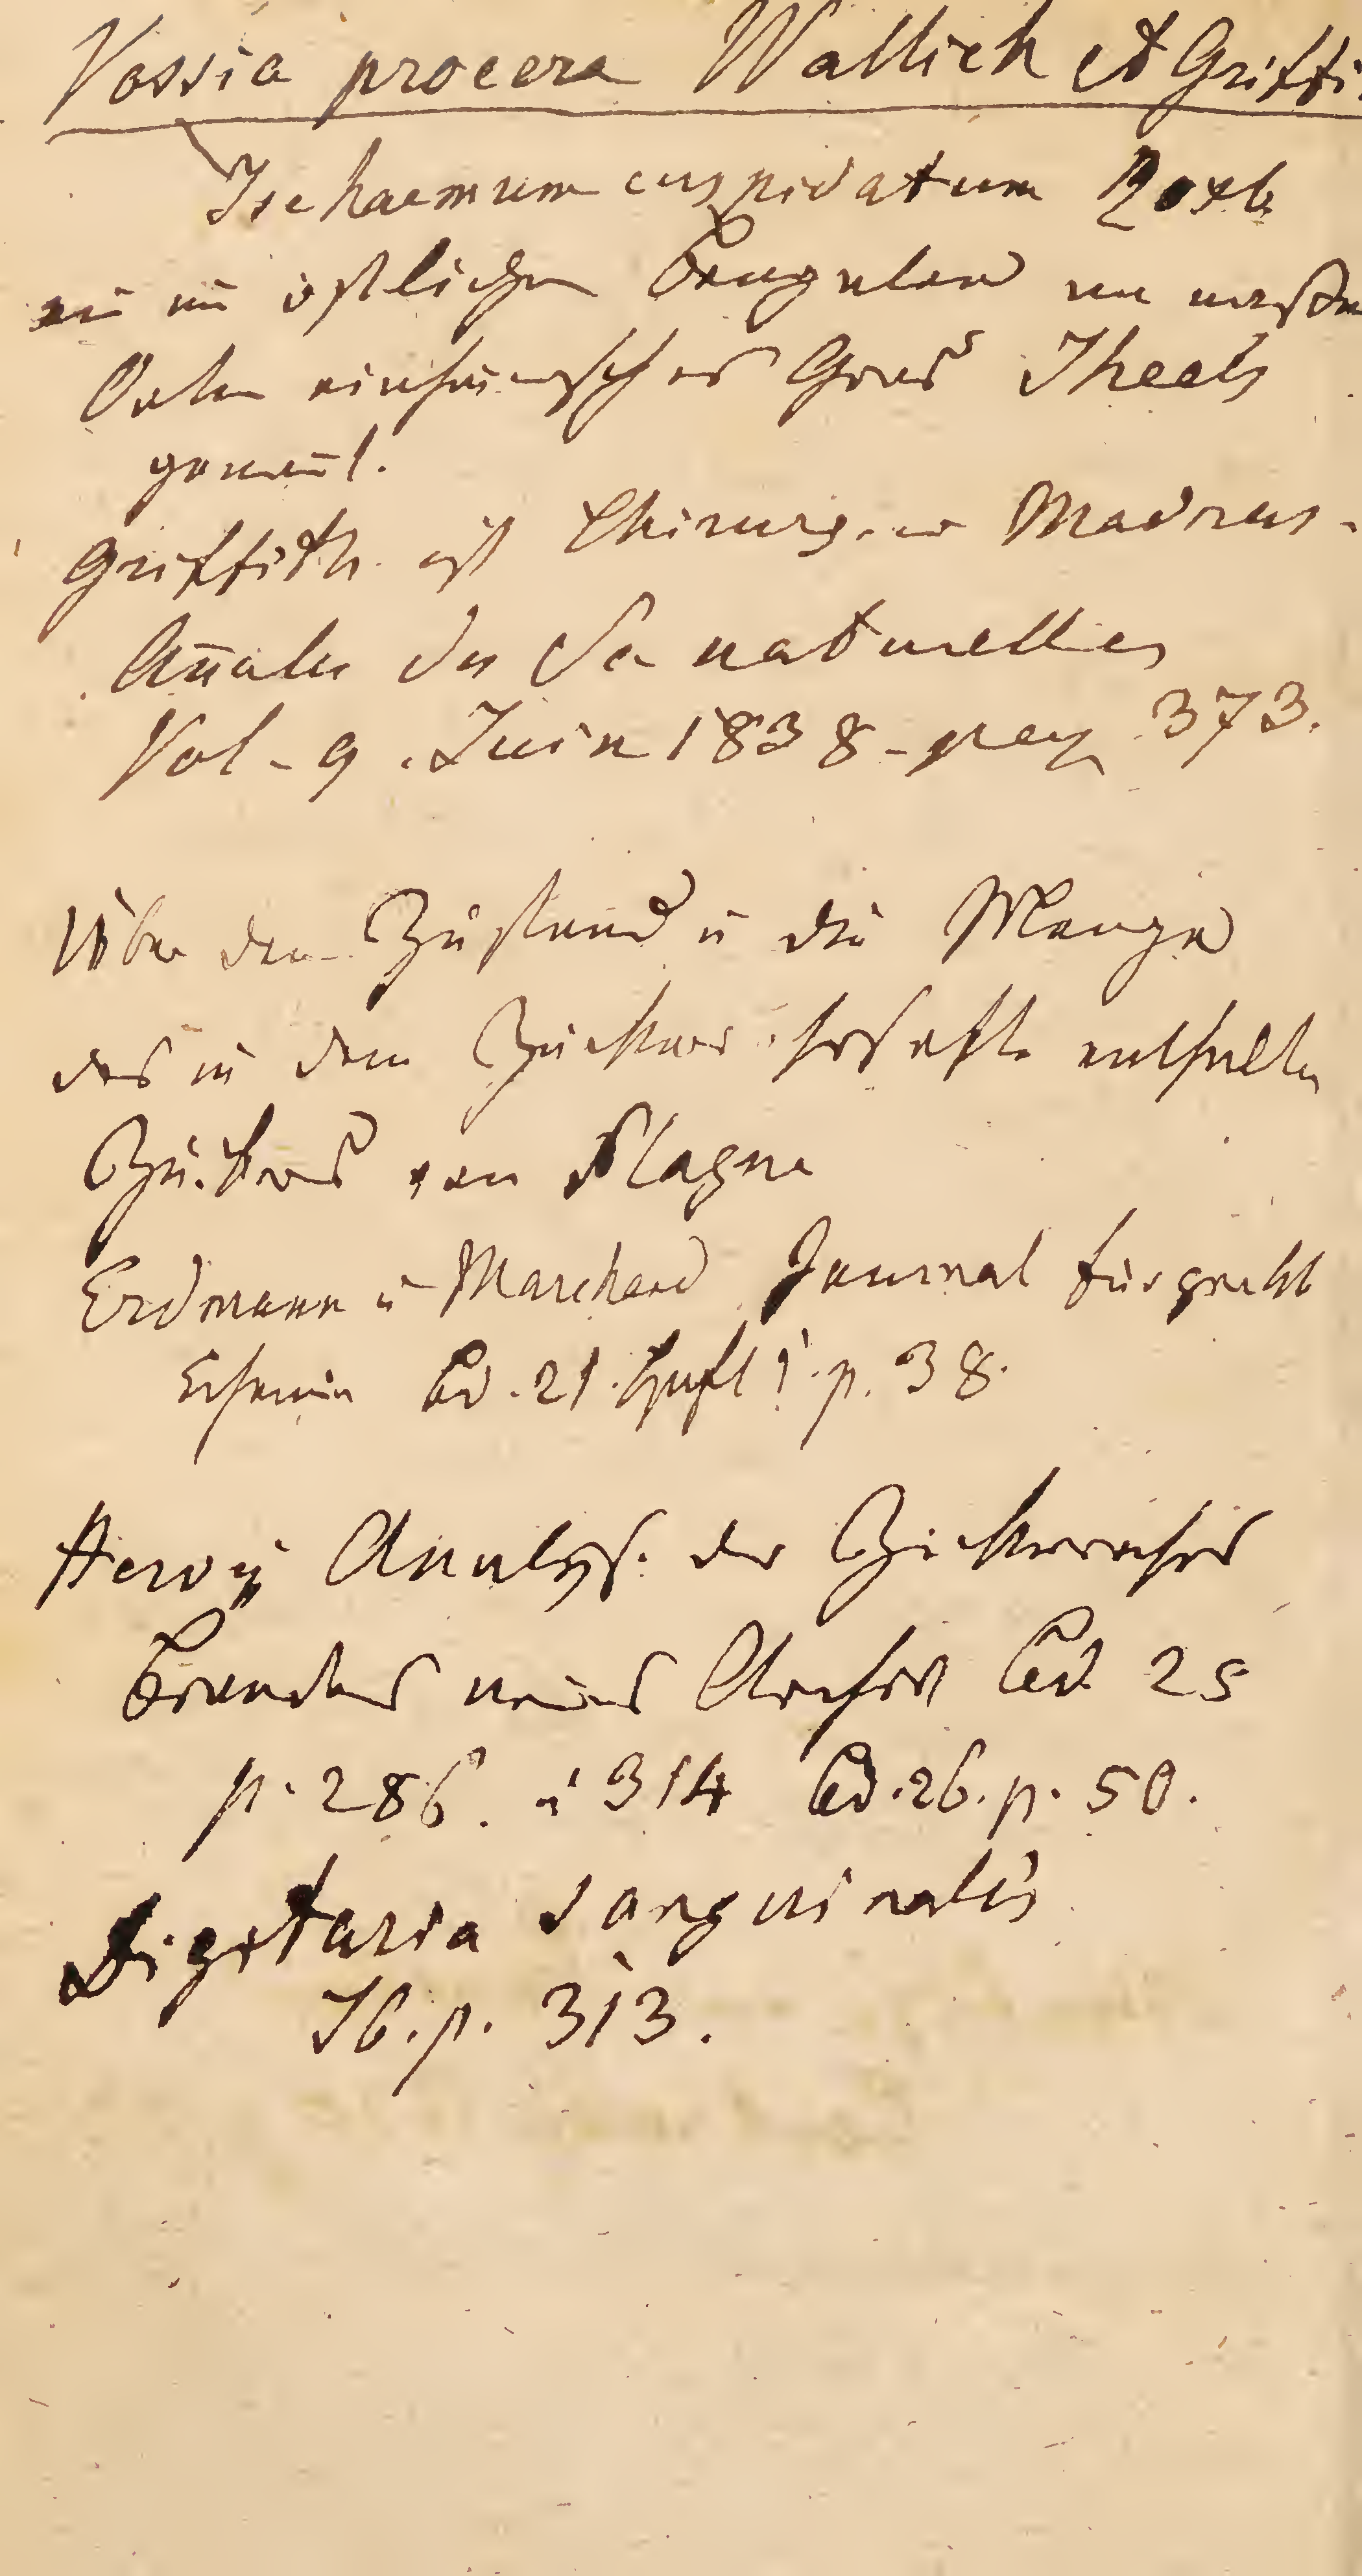 Vossia procera Wallich et Griffi
Ischaemum cuspidatum Roxb
ein im östlichen Bengalen an nassen
Orten einheimisches Gras Theels
genañt.
Griffith ist Chirurg in Madras.
Añales des Sc naturelles
Vol. 9. Juin 1838. pag 373.
Über den Zustand u die Menge
des in dem Zuckerrohrsafte enthaltn
Zuckers von Plagne
Erdmann u Marchand Journal für prakt
Chemie Bd. 21. Heft 1. p. 38.
Hervÿ Analyse des Zuckerrohrs
Brandes neues Archiv Bd 25
p. 286. u 314 Bd. 26. p. 50.
Digitaria sanguinalis
Ib. p. 313.